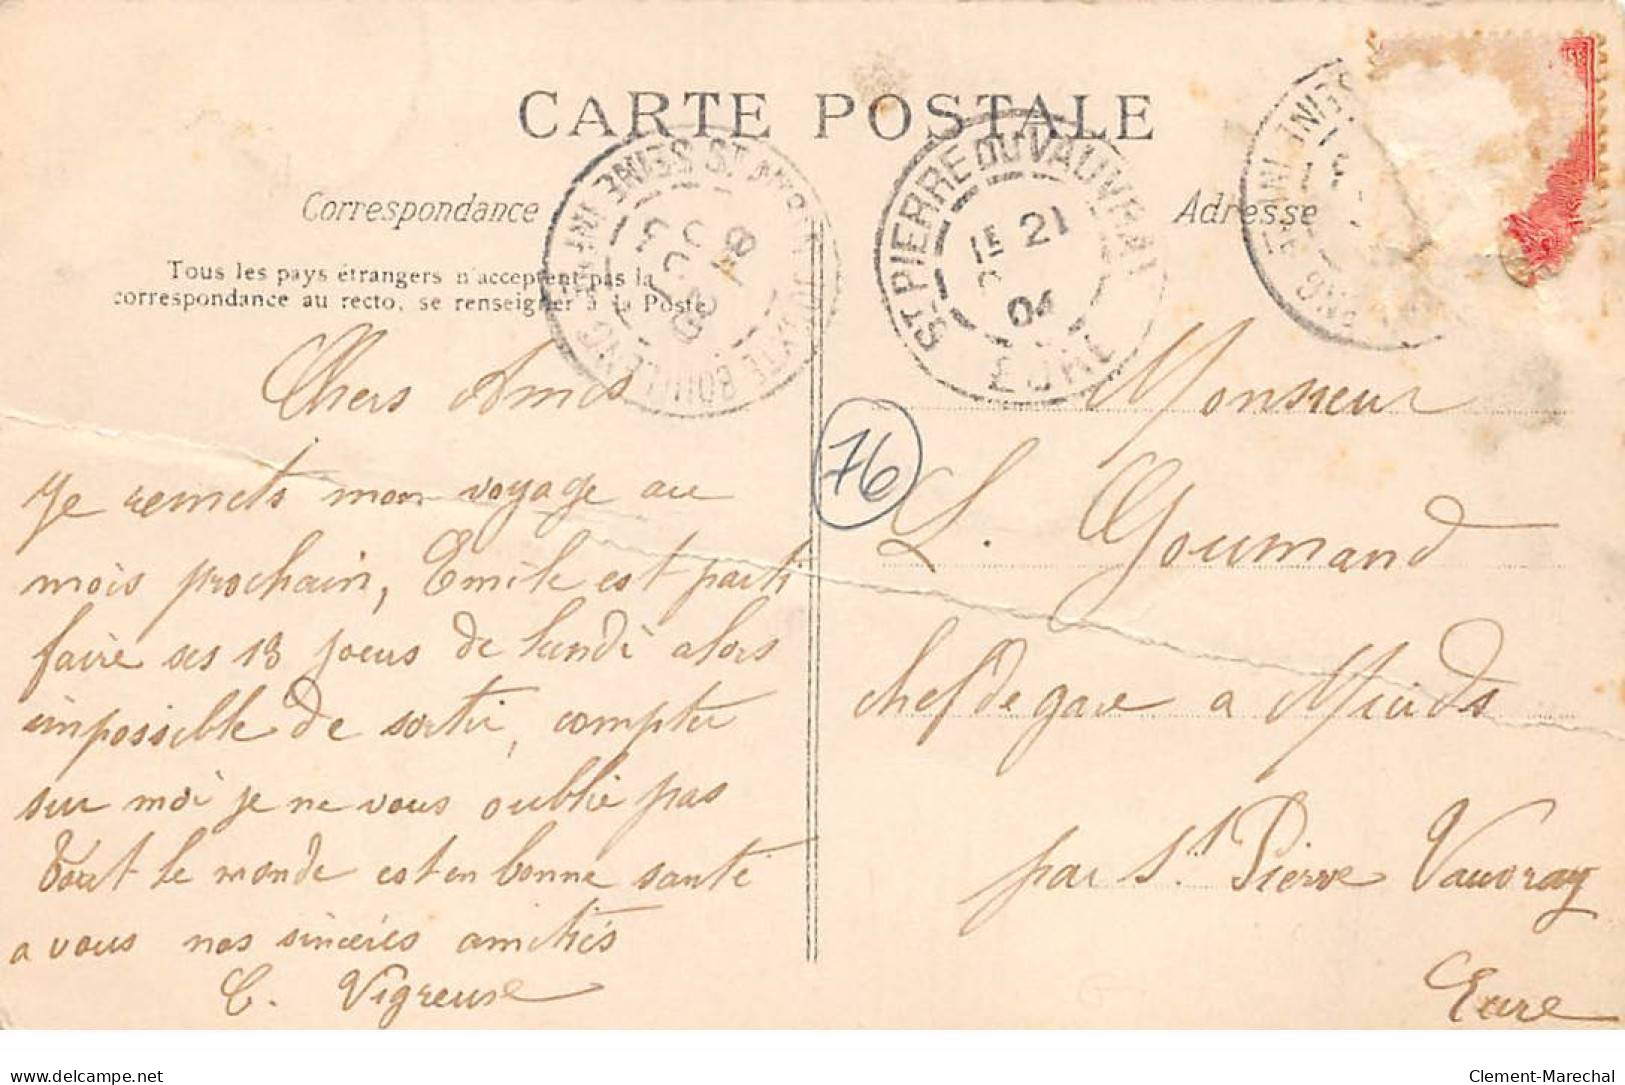 CARTE POSTALE
Correspondance
Adresse
Tous les pays étrangers n'acceptent pas la
correspondance au recto, se renseigner à la Poste
ST PIERRE DU VAUVRAY
21
04
EURE
SEINE INFRE
76
Chers Amis
Je remets mon voyage au
mois prochain, Emile est parti
faire ses 13 jours de lundi alors
impossible de sortir, compter
sur moi je ne vous oublie pas
Tout le monde est en bonne santé
a vous nos sincères amitiés
C. Vigreuse
Monsieur
L. Gourmand
chef de gare a Muids
par St. Pierre Vauvray
Eure
delcampe.net
Clement-Marechal